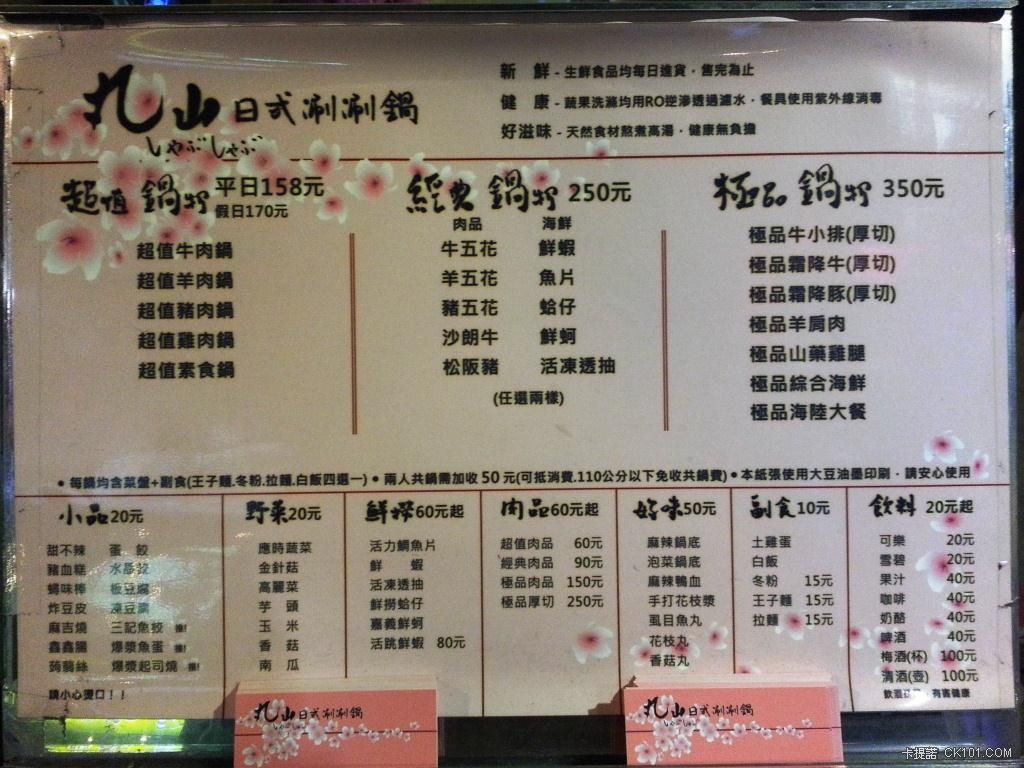 丸山日式涮涮鍋
しゃぶしゃぶ
新 鮮 - 生鮮食品均每日進貨，售完為止
健 康 - 蔬果洗滌均用RO逆滲透過濾水，餐具使用紫外線消毒
好滋味 - 天然食材熬煮高湯，健康無負擔
超值鍋物 平日158元
假日170元
超值牛肉鍋
超值羊肉鍋
超值豬肉鍋
超值雞肉鍋
超值素食鍋
經典鍋物 250元
肉品 海鮮
牛五花 鮮蝦
羊五花 魚片
豬五花 蛤仔
沙朗牛 鮮蚵
松阪豬 活凍透抽
(任選兩樣)
極品鍋物 350元
極品牛小排(厚切)
極品霜降牛(厚切)
極品霜降豚(厚切)
極品羊肩肉
極品山藥雞腿
極品綜合海鮮
極品海陸大餐
●每鍋均含菜盤+副食(王子麵.冬粉.拉麵.白飯四選一)●兩人共鍋需加收50元(可抵消費.110公分以下免收共鍋費)●本紙張使用大豆油墨印刷，請安心使用
小品20元
甜不辣 蛋 餃
豬血糕 水晶餃
蟳味棒 板豆腐
炸豆皮 凍豆腐
麻吉燒 三記魚餃 推!
鑫鑫腸 爆漿魚蛋 推!
蒟蒻絲 爆漿起司燒 推!
請小心燙口！！
野菜20元
應時蔬菜
金針菇
高麗菜
芋 頭
玉 米
香 菇
南 瓜
鮮撈60元起
活力鯛魚片
鮮 蝦
活凍透抽
鮮撈蛤仔
嘉義鮮蚵
活跳鮮蝦 80元
肉品60元起
超值肉品 60元
經典肉品 90元
極品肉品 150元
極品厚切 250元
好味50元
麻辣鍋底
泡菜鍋底
麻辣鴨血
手打花枝漿
虱目魚丸
花枝丸
香菇丸
副食10元
土雞蛋
白飯
冬粉 15元
王子麵 15元
拉麵 15元
飲料 20元起
可樂 20元
雪碧 20元
果汁 40元
咖啡 40元
奶酪 40元
啤酒 40元
梅酒(杯) 100元
清酒(壺) 100元
丸山日式涮涮鍋
しゃぶしゃぶ
丸山日式涮涮鍋
しゃぶしゃぶ
卡提諾 CK101.COM